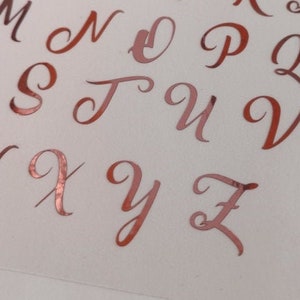 M N O P Q
S T U V
X Y Z